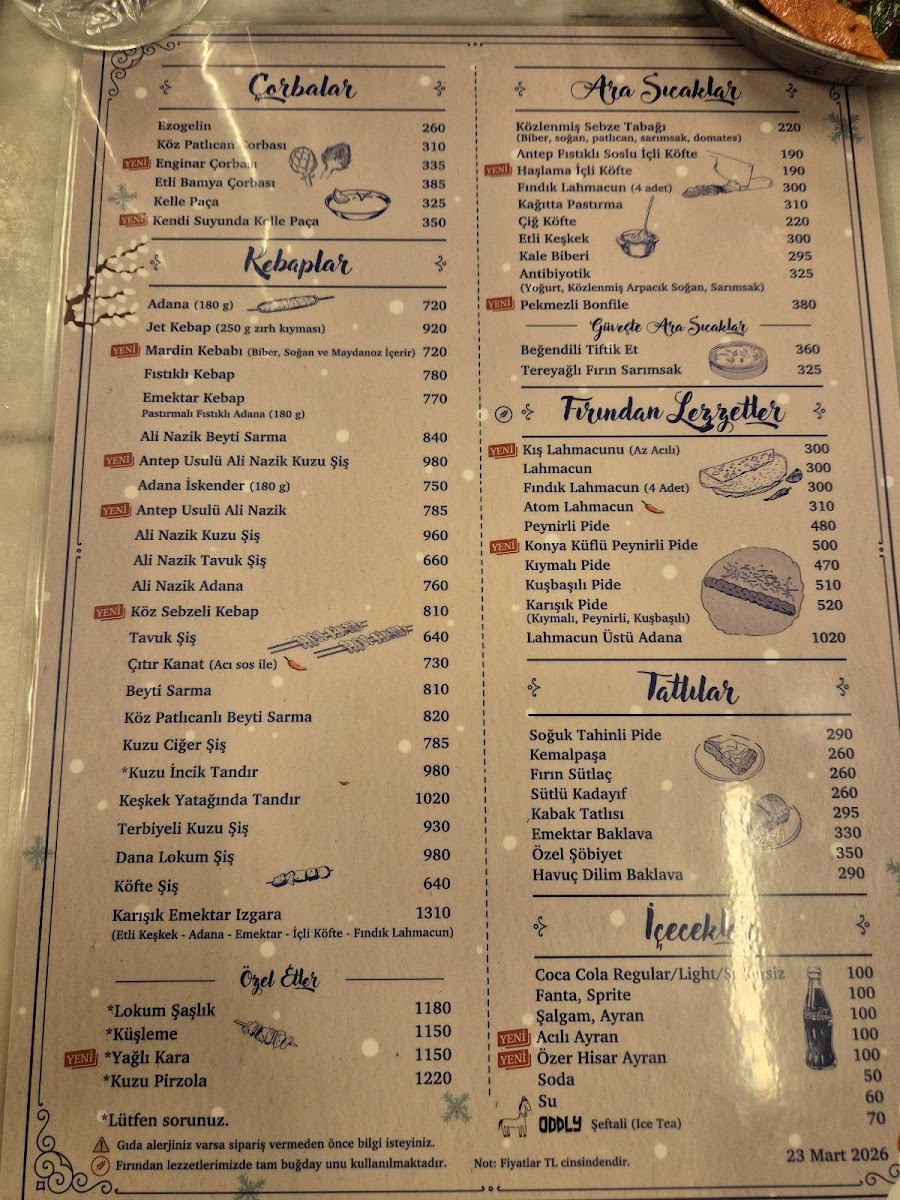 Çorbalar
Ezogelin 260
Köz Patlıcan Çorbası 310
YENİ Enginar Çorbası 335
Etli Bamya Çorbası 385
Kelle Paça 325
YENİ Kendi Suyunda Kelle Paça 350
Kebaplar
Adana (180 g) 720
Jet Kebap (250 g zırh kıyması) 920
YENİ Mardin Kebabı (Biber, Soğan ve Maydanoz İçerir) 720
Fıstıklı Kebap 780
Emektar Kebap 770
Pastırmalı Fıstıklı Adana (180 g)
Ali Nazik Beyti Sarma 840
YENİ Antep Usulü Ali Nazik Kuzu Şiş 980
Adana İskender (180 g) 750
YENİ Antep Usulü Ali Nazik 785
Ali Nazik Kuzu Şiş 960
Ali Nazik Tavuk Şiş 660
Ali Nazik Adana 760
YENİ Köz Sebzeli Kebap 810
Tavuk Şiş 640
Çıtır Kanat (Acı sos ile) 730
Beyti Sarma 810
Köz Patlıcanlı Beyti Sarma 820
Kuzu Ciğer Şiş 785
*Kuzu İncik Tandır 980
Keşkek Yatağında Tandır 1020
Terbiyeli Kuzu Şiş 930
Dana Lokum Şiş 980
Köfte Şiş 640
Karışık Emektar Izgara 1310
(Etli Keşkek - Adana - Emektar - İçli Köfte - Fındık Lahmacun)
Özel Etler
*Lokum Şaşlık 1180
*Küşleme 1150
YENİ *Yağlı Kara 1150
*Kuzu Pirzola 1220
*Lütfen sorunuz.
Gıda alerjiniz varsa sipariş vermeden önce bilgi isteyiniz.
Fırından lezzetlerimizde tam buğday unu kullanılmaktadır.
Ara Sıcaklar
Közlenmiş Sebze Tabağı 220
(Biber, soğan, patlıcan, sarımsak, domates)
Antep Fıstıklı Soslu İçli Köfte 190
YENİ Haşlama İçli Köfte 190
Fındık Lahmacun (4 adet) 300
Kağıtta Pastırma 310
Çiğ Köfte 220
Etli Keşkek 300
Kale Biberi 295
Antibiyotik 325
(Yoğurt, Közlenmiş Arpacık Soğan, Sarımsak)
YENİ Pekmezli Bonfile 380
Güveçte Ara Sıcaklar
Beğendili Tiftik Et 360
Tereyağlı Fırın Sarımsak 325
Fırından Lezzetler
YENİ Kış Lahmacunu (Az Acılı) 300
Lahmacun 300
Fındık Lahmacun (4 Adet) 300
Atom Lahmacun 310
Peynirli Pide 480
YENİ Konya Küflü Peynirli Pide 500
Kıymalı Pide 470
Kuşbaşılı Pide 510
Karışık Pide 520
(Kıymalı, Peynirli, Kuşbaşılı)
Lahmacun Üstü Adana 1020
Tatlılar
Soğuk Tahinli Pide 290
Kemalpaşa 260
Fırın Sütlaç 260
Sütlü Kadayıf 260
Kabak Tatlısı 295
Emektar Baklava 330
Özel Şöbiyet 350
Havuç Dilim Baklava 290
Coca Cola Regular/Light/ 100
Fanta, Sprite 100
Şalgam, Ayran 100
YENİ Acılı Ayran 100
YENİ Özer Hisar Ayran 100
Soda 50
Su 60
ODDLY Şeftali (Ice Tea) 70
Not: Fiyatlar TL cinsindendir.
23 Mart 2026